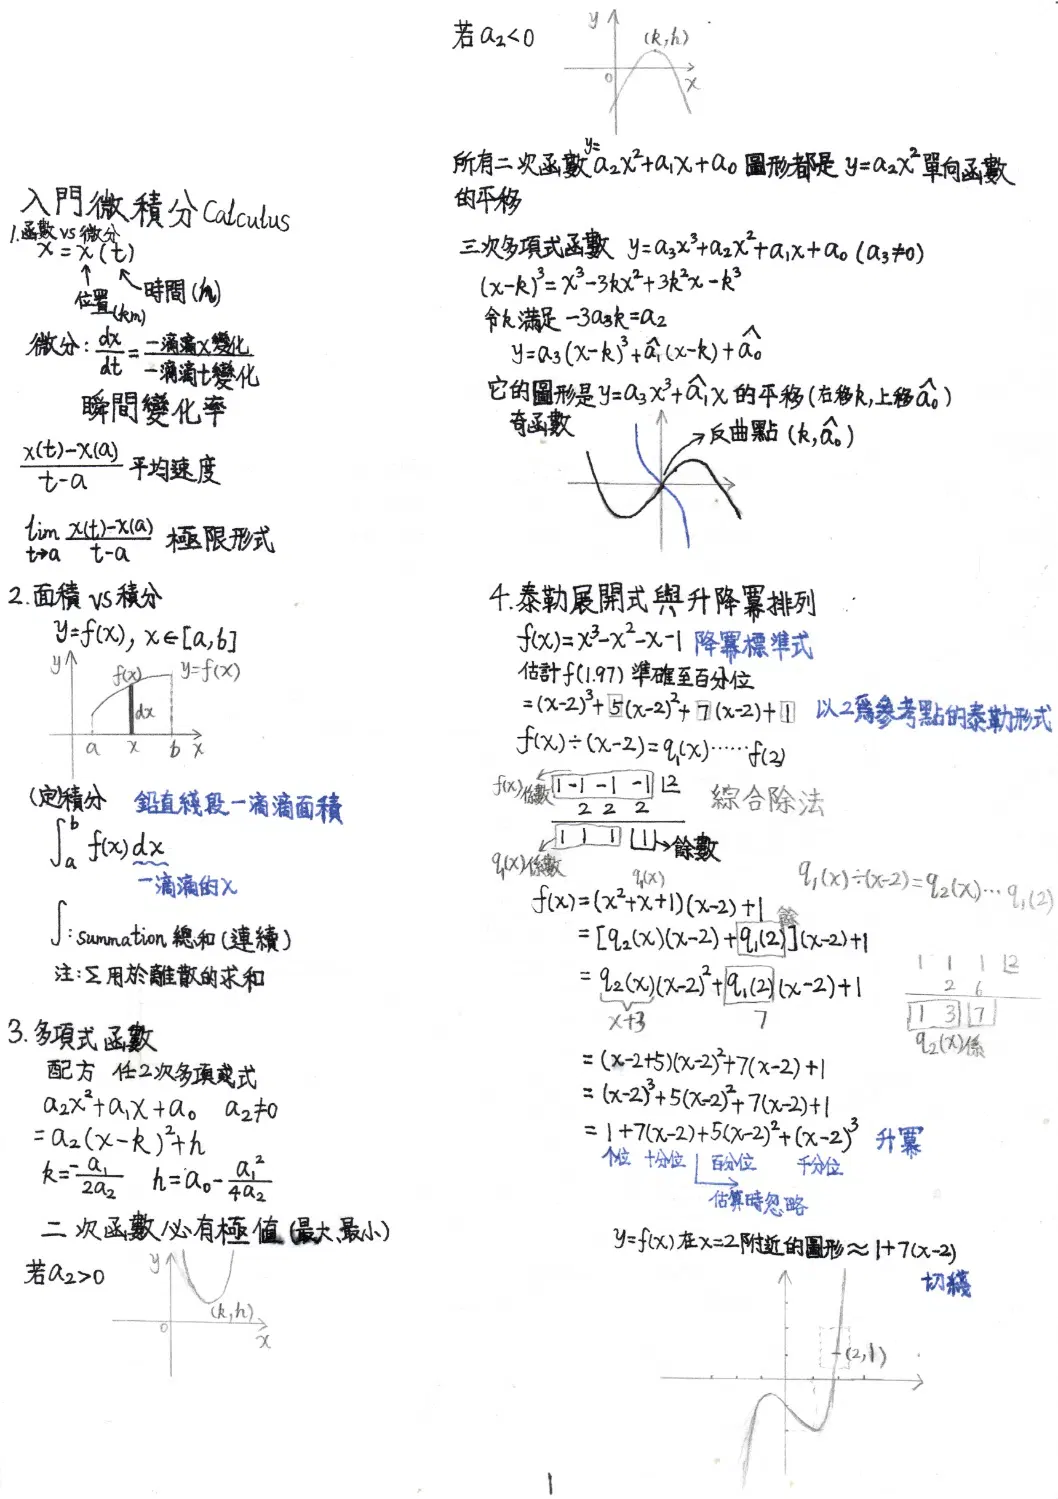 入門微積分 Calculus
1.函數 vs 微分
x = x(t)
位置(km) 時間(h)
微分: dx/dt = 一滴滴x變化/一滴滴t變化
瞬間變化率
x(t)-x(a)/t-a 平均速度
lim t→a x(t)-x(a)/t-a 極限形式
2.面積 vs 積分
y=f(x), x∈[a,b]
y f(x) y=f(x)
dx
a x b x
(定)積分 鉛直綫段一滴滴面積
∫ₐᵇ f(x)dx
一滴滴的x
∫:summation 總和(連續)
注:Σ用於離散的求和
3.多項式函數
配方 任2次多項式
a₂x²+a₁x+a₀ a₂≠0
=a₂(x-k)²+h
k=-a₁/2a₂ h=a₀-a₁²/4a₂
二次函數必有極值(最大、最小)
若a₂>0
y
(k,h)
0 x
若a₂<0
y (k,h)
0 x
所有二次函數 y=a₂x²+a₁x+a₀ 圖形都是 y=a₂x² 單向函數
的平移
三次多項式函數 y=a₃x³+a₂x²+a₁x+a₀ (a₃≠0)
(x-k)³=x³-3kx²+3k²x-k³
令k滿足 -3a₃k=a₂
y=a₃(x-k)³+â₁(x-k)+â₀
它的圖形是y=a₃x³+â₁x的平移(右移k,上移â₀)
奇函數 反曲點 (k,â₀)
4.泰勒展開式與升降冪排列
f(x)=x³-x²-x-1 降冪標準式
估計f(1.97) 準確至百分位
=(x-2)³+5(x-2)²+7(x-2)+1 以2為參考點的泰勒形式
f(x)÷(x-2)=q₁(x)……f(2)
f(x)係數 1 -1 -1 -1 |2 綜合除法
2 2 2
1 1 1 1 →餘數
q₁(x)係數
q₁(x)÷(x-2)=q₂(x)…q₁(2)
q₁(x)
f(x)=(x²+x+1)(x-2)+1 餘
=[q₂(x)(x-2)+q₁(2)](x-2)+1
=q₂(x)(x-2)²+q₁(2)(x-2)+1
x+3 7
1 1 1 |2
2 6
1 3 7
q₂(x)係
=(x-2+5)(x-2)²+7(x-2)+1
=(x-2)³+5(x-2)²+7(x-2)+1
=1+7(x-2)+5(x-2)²+(x-2)³ 升冪
个位 十分位 百分位 千分位
估算時忽略
y=f(x)在x=2附近的圖形≈1+7(x-2)
切綫
(2,1)
1